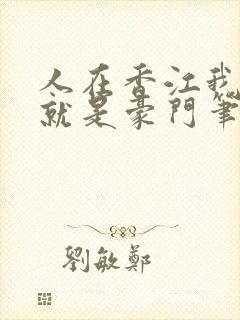 人在香江我
就是豪门笔
劉敏鄭